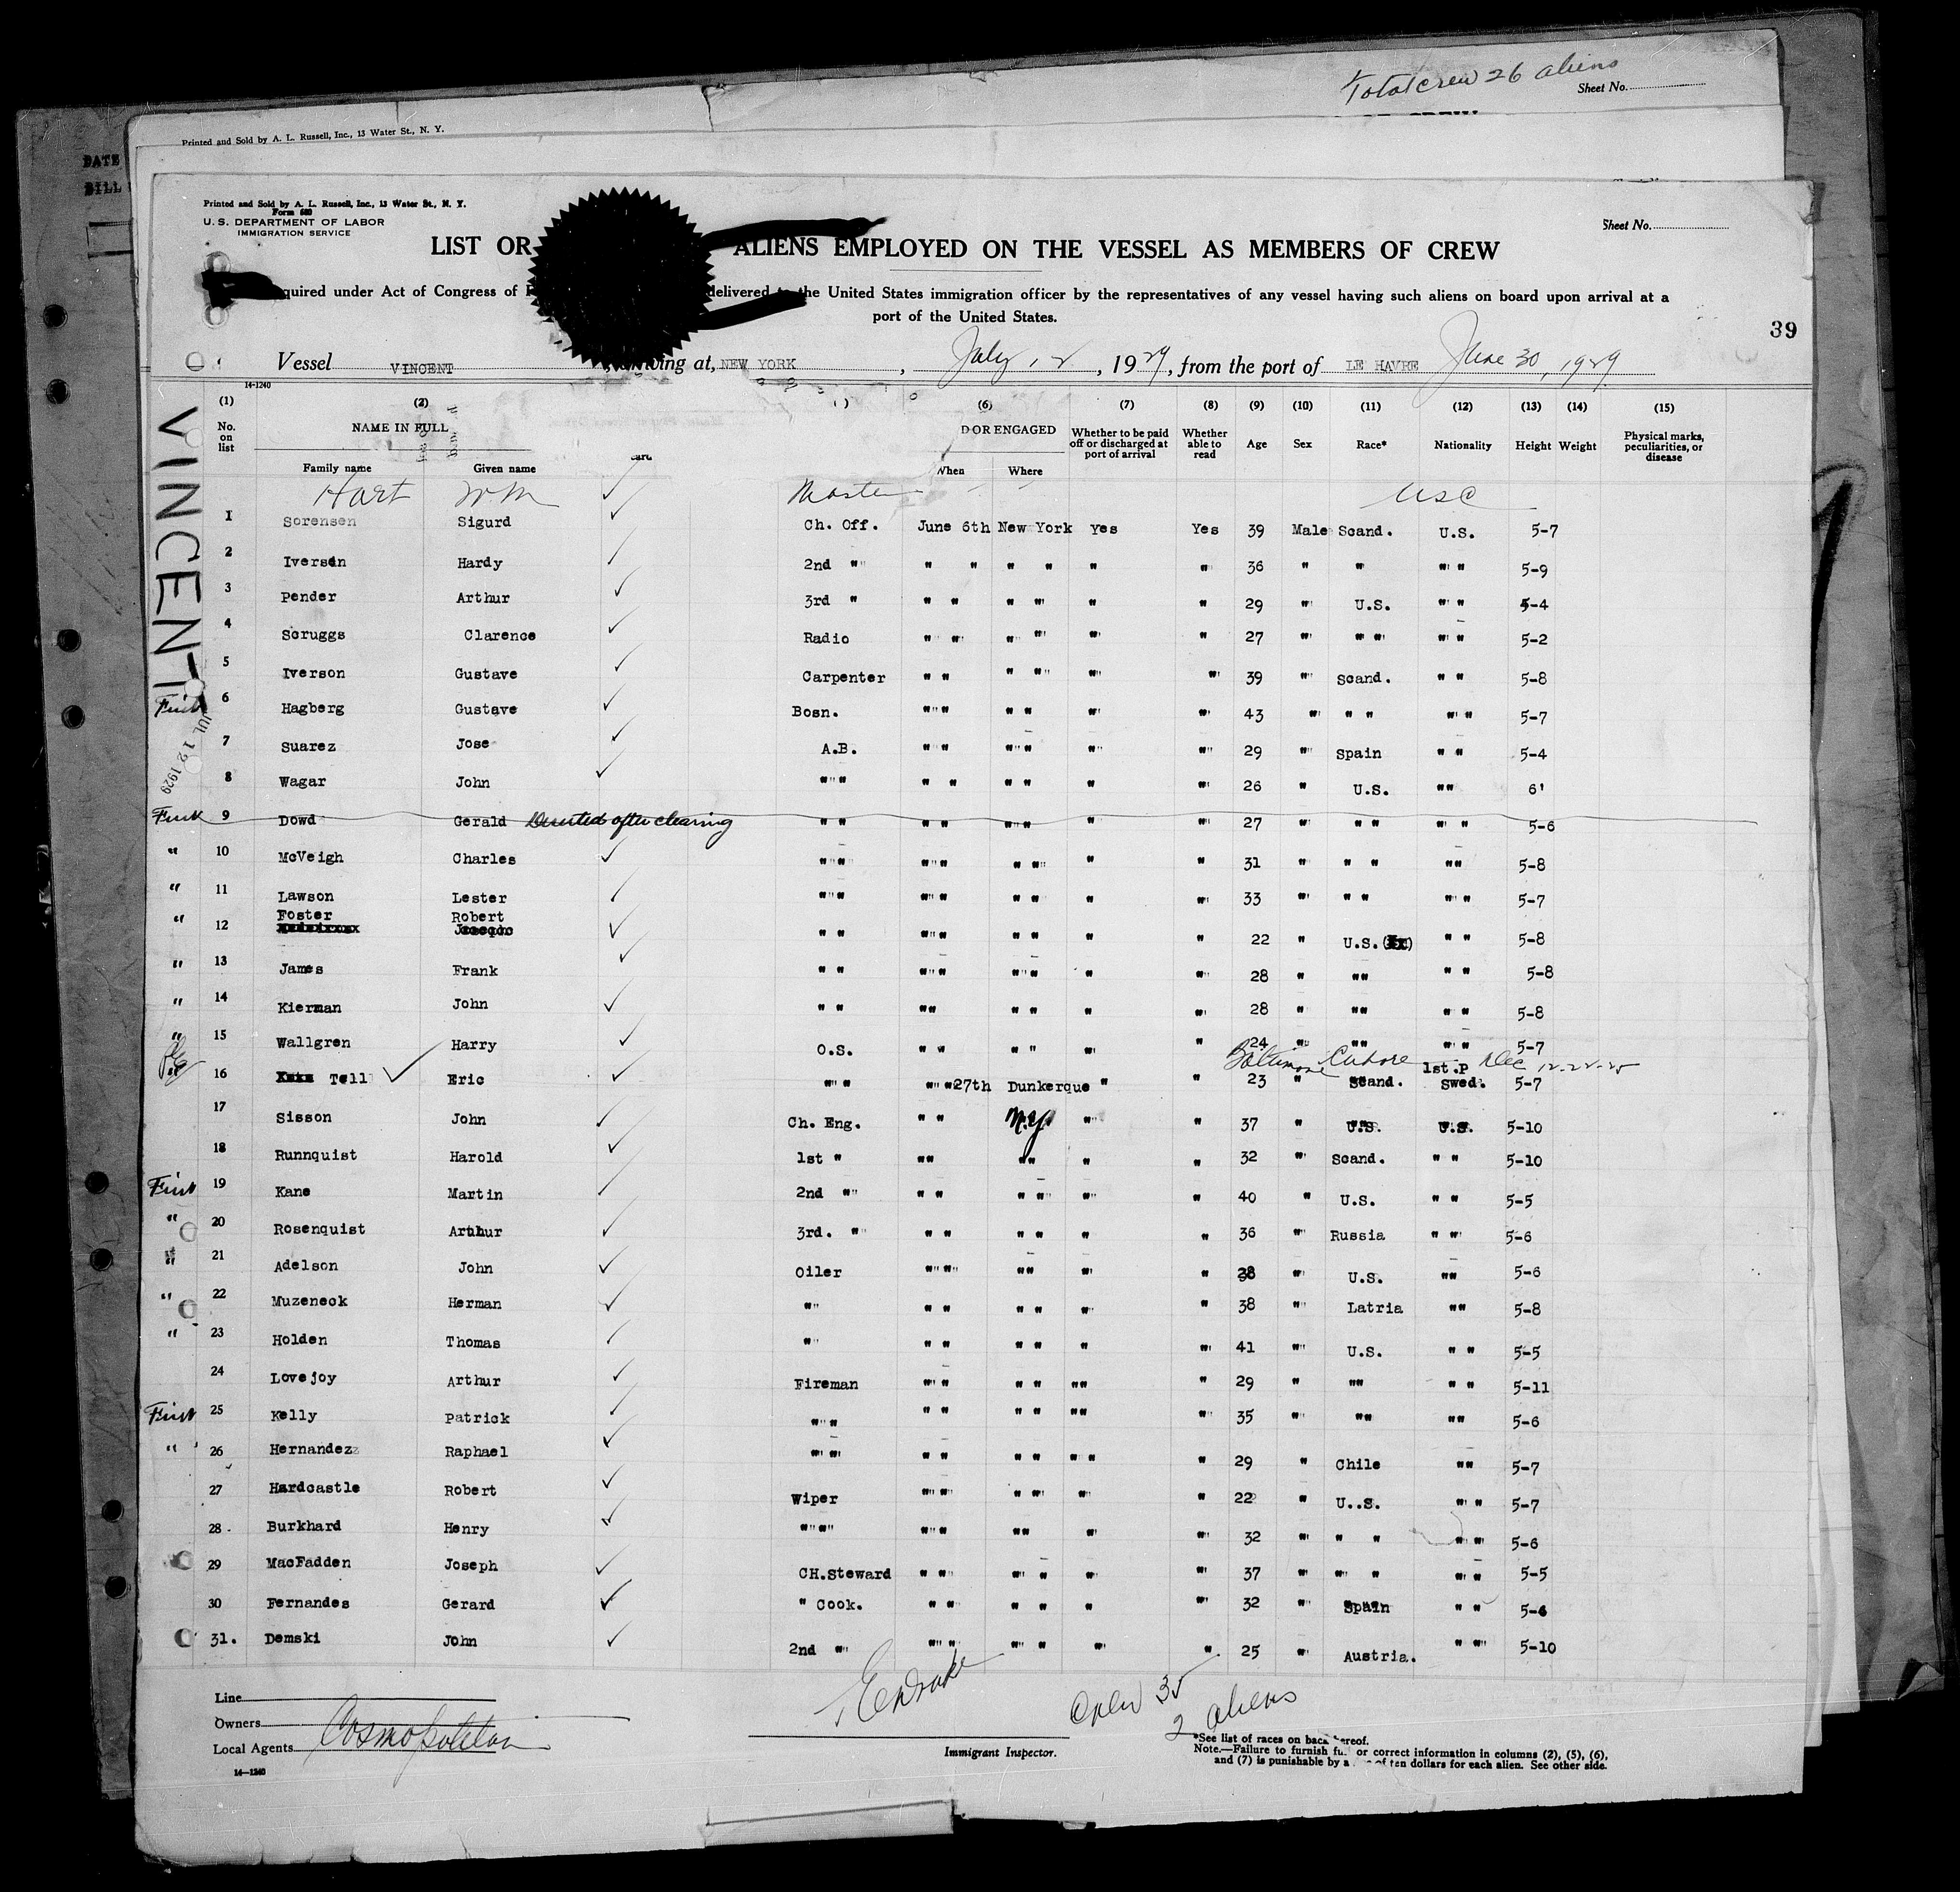 Total crew 26 aliens
Sheet No.
Printed and Sold by A. L. Russell, Inc., 13 Water St., N. Y.
DATE
BILL
Printed and Sold by A. L. Russell, Inc., 13 Water St., N. Y.
Form 680
U. S. DEPARTMENT OF LABOR
IMMIGRATION SERVICE
Sheet No.
LIST OR ALIENS EMPLOYED ON THE VESSEL AS MEMBERS OF CREW
quired under Act of Congress of delivered to the United States immigration officer by the representatives of any vessel having such aliens on board upon arrival at a
port of the United States.
39
Vessel VINCENT iving at, NEW YORK, July 12, 1929, from the port of LE HAVRE June 30, 1929
14-1240
VINCENT
JUL 12 1929
(1) (2) (6) (7) (8) (9) (10) (11) (12) (13) (14) (15)
No. on list NAME IN FULL D OR ENGAGED Whether to be paid off or discharged at port of arrival Whether able to read Age Sex Race* Nationality Height Weight Physical marks, peculiarities, or disease
Family name Given name When Where
Hart Wm ✓ Master USC
1 Sorensen Sigurd ✓ Ch. Off. June 6th New York Yes Yes 39 Male Scand. U.S. 5-7
2 Iversen Hardy ✓ 2nd " " " " " " " 36 " " " " 5-9
3 Pender Arthur ✓ 3rd " " " " " " " 29 " U.S. " " 5-4
4 Scruggs Clarence ✓ Radio " " " " " " 27 " " " " " 5-2
5 Iverson Gustave ✓ Carpenter " " " " " " 39 " Scand. " " 5-8
First 6 Hagberg Gustave ✓ Bosn. " " " " " " 43 " " " " " 5-7
7 Suarez Jose ✓ A.B. " " " " " " 29 " Spain " " 5-4
8 Wagar John ✓ " " " " " " " " 26 " U.S. " " 6'
First 9 Dowd Gerald Deserted after clearing " " " " " " " " 27 " " " " " 5-6
" 10 McVeigh Charles ✓ " " " " " " " " 31 " " " " " 5-8
" 11 Lawson Lester ✓ " " " " " " " " 33 " " " " " 5-7
" 12 Foster Robert ✓ " " " " " " " " 22 " U.S. " " 5-8
" 13 James Frank ✓ " " " " " " " " 28 " " " " " 5-8
" 14 Kierman John ✓ " " " " " " " " 28 " " " " " 5-8
" 15 Wallgren Harry ✓ O.S. " " " " " " 24 " " " " " 5-7
Baltimore 1st.P Dec 12-22-25
" 16 Tell ✓ Eric ✓ " " " " 27th Dunkerque " " 23 " Scand. Swed. 5-7
17 Sisson John ✓ Ch. Eng. " " N.Y. " " 37 " U.S. U.S. 5-10
18 Runnquist Harold ✓ 1st " " " " " " " 32 " Scand. " " 5-10
First 19 Kane Martin ✓ 2nd " " " " " " " 40 " U.S. " " 5-5
" 20 Rosenquist Arthur ✓ 3rd. " " " " " " " 36 " Russia " " 5-6
" 21 Adelson John ✓ Oiler " " " " " " 38 " U.S. " " 5-6
" 22 Muzeneck Herman ✓ " " " " " " " 38 " Latria " " 5-8
" 23 Holden Thomas ✓ " " " " " " " 41 " U.S. " " 5-5
24 Lovejoy Arthur ✓ Fireman " " " " " " " 29 " " " " " 5-11
First 25 Kelly Patrick ✓ " " " " " " " " " 35 " " " " " 5-6
" 26 Hernandez Raphael ✓ " " " " " " " " " 29 " Chile " " 5-7
27 Hardcastle Robert ✓ Wiper " " " " " " 22 " U..S. " " 5-7
28. Burkhard Henry ✓ " " " " " " " " 32 " " " " " 5-6
29 MacFadden Joseph ✓ CH.Steward " " " " " " 37 " " " " " 5-5
30 Fernandes Gerard ✓ " Cook. " " " " " " 32 " Spain " " 5-4
31. Demski John ✓ 2nd " " " " " " " 25 " Austria. " " 5-10
Line
Owners
Local Agents Cosmopolitan
14-1240
Immigrant Inspector.
Crew 35
2 aliens
*See list of races on back hereof.
Note.—Failure to furnish or correct information in columns (2), (5), (6),
and (7) is punishable by a of ten dollars for each alien. See other side.